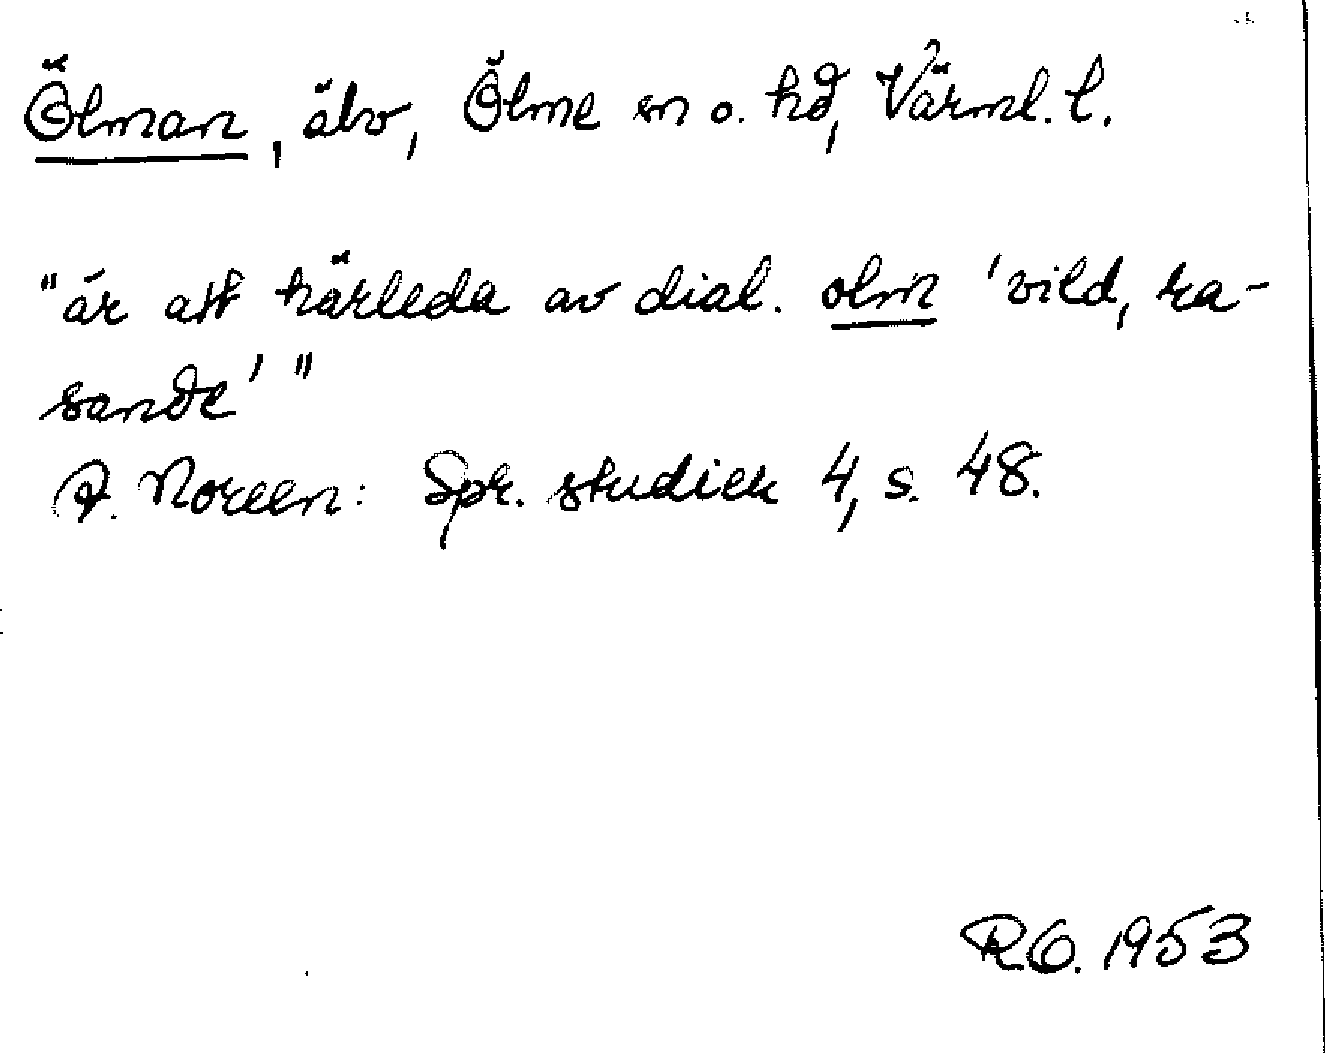 Ölman, älv, Ölme sn o. hd, Värml. l.
"är att härleda av dial. olm 'vild, ra-
sande' "
A. Noreen: Spr. studier 4, s. 48.
R.O. 1953